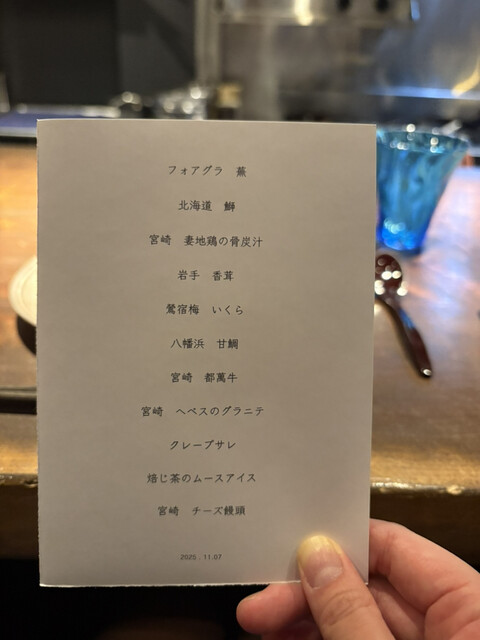 フォアグラ　蕪
北海道　鰤
宮崎　妻地鶏の骨炭汁
岩手　香茸
鶯宿梅　いくら
八幡浜　甘鯛
宮崎　都萬牛
宮崎　ヘベスのグラニテ
クレープサレ
焙じ茶のムースアイス
宮崎　チーズ饅頭
2025.11.07